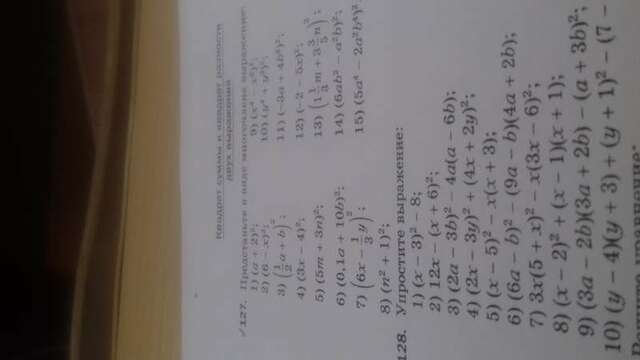 Квадрат суммы и квадрат разности
двух выражений
127. Представьте в виде многочлена выражение:
1) (a + 2)²;
2) (6 − x)²;
3) (1/2 a + b)²;
4) (3x − 4)²;
5) (5m + 3n)²;
6) (0,1a + 10b)²;
7) (6x − 1/3 y)²;
8) (n² + 1)²;
11) (−3a + 4b⁴)²;
12) (−2 − 5x)²;
13) (1 1/3 m + 3 3/5 n)²;
14) (6ab² − a²b)²;
15) (5a⁴ − 2a²b⁴)².
128. Упростите выражение:
1) (x − 3)² − 8;
2) 12x − (x + 6)²;
3) (2a − 3b)² − 4a(a − 6b);
4) (2x − 3y)² + (4x + 2y)²;
5) (x − 5)² − x(x + 3);
6) (6a − b)² − (9a − b)(4a + 2b);
7) 3x(5 + x)² − x(3x − 6)²;
8) (x − 2)² + (x − 1)(x + 1);
9) (3a − 2b)(3a + 2b) − (a + 3b)²;
10) (y − 4)(y + 3) + (y + 1)² − (7 −